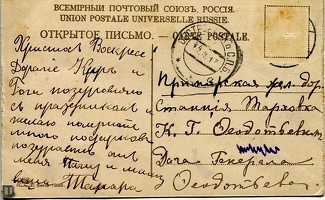 ВСЕМІРНЫЙ ПОЧТОВЫЙ СОЮЗЪ. РОССІЯ.
UNION POSTALE UNIVERSELLE RUSSIE.
ОТКРЫТОЕ ПИСЬМО. — CARTE POSTALE.
Христосъ Воскресе
Дорогіе Кира и
поздравляю
съ праздникомъ
желаю
много подарковъ
меня Папу и маму
Тамара
Приморская жел. дор.
Станція Тарховка
К. Г. Өеодотьевкой
Дача Генерала
Өеодотьева